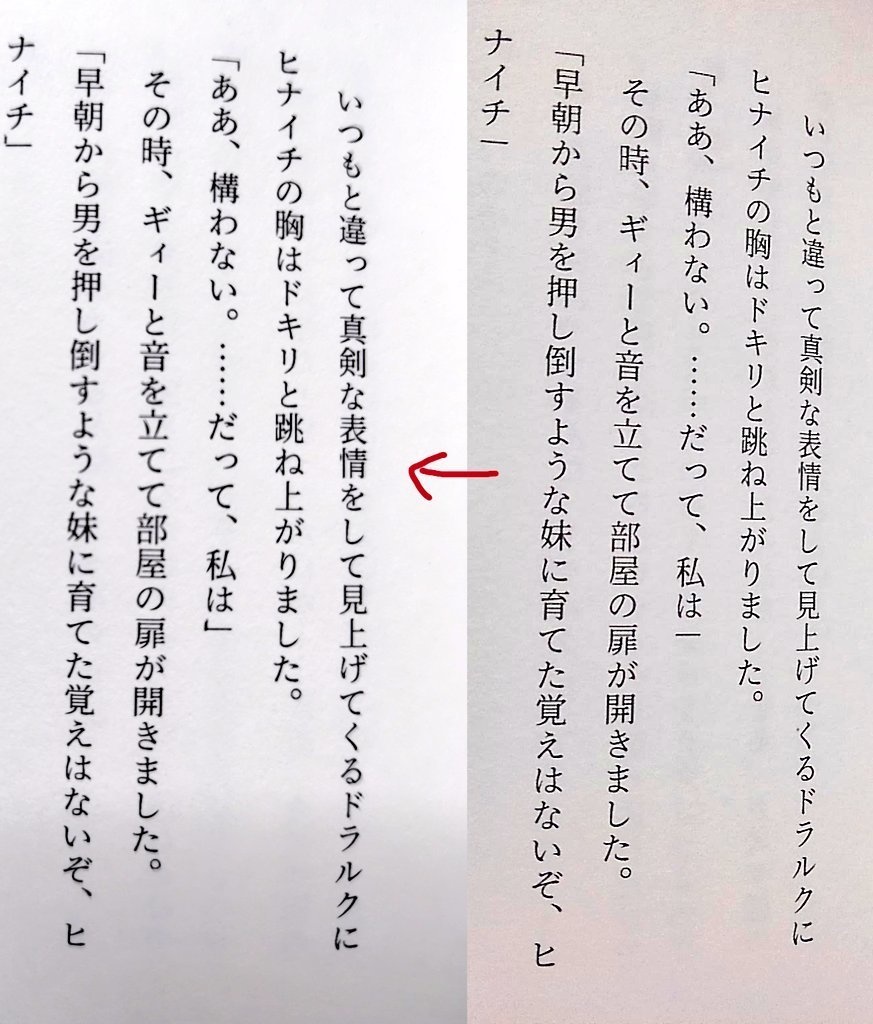 いつもと違って真剣な表情をして見上げてくるドラルクに
ヒナイチの胸はドキリと跳ね上がりました。
「ああ、構わない。……だって、私は―
その時、ギィーと音を立てて部屋の扉が開きました。
「早朝から男を押し倒すような妹に育てた覚えはないぞ、ヒ
ナイチ―
いつもと違って真剣な表情をして見上げてくるドラルクに
ヒナイチの胸はドキリと跳ね上がりました。
「ああ、構わない。……だって、私は」
その時、ギィーと音を立てて部屋の扉が開きました。
「早朝から男を押し倒すような妹に育てた覚えはないぞ、ヒ
ナイチ」